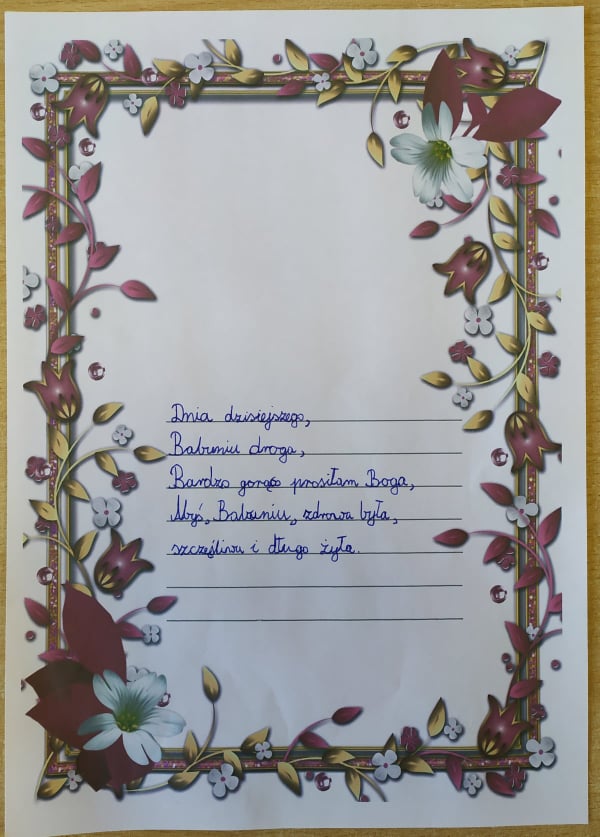 Dnia dzisiejszego,
Babuniu droga,
Bardzo gorąco prosiłam Boga,
Abyś, Babuniu, zdrowa była,
szczęśliwa i długo żyła.